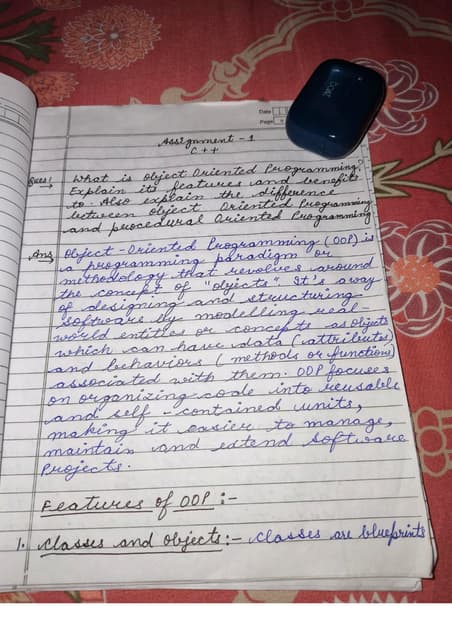 Date
Page
Assignment - 1
C++
Ques1 → What is Object Oriented Programming?
Explain its features and benefits
to. Also explain the difference
between object Oriented Programming
and procedural Oriented Programming
Ans → Object-Oriented Programming (OOP) is
a programming paradigm or
methodology that revolves around
the concept of "objects". It's a way
of designing and structuring
software by modelling real-
world entities or concepts as objects
which can have data (attributes)
and behaviors (methods or functions)
associated with them. OOP focuses
on organizing code into reusable
and self-contained units,
making it easier to manage,
maintain and extend software
Projects.
Features of OOP :-
1. Classes and Objects :- Classes are blueprints